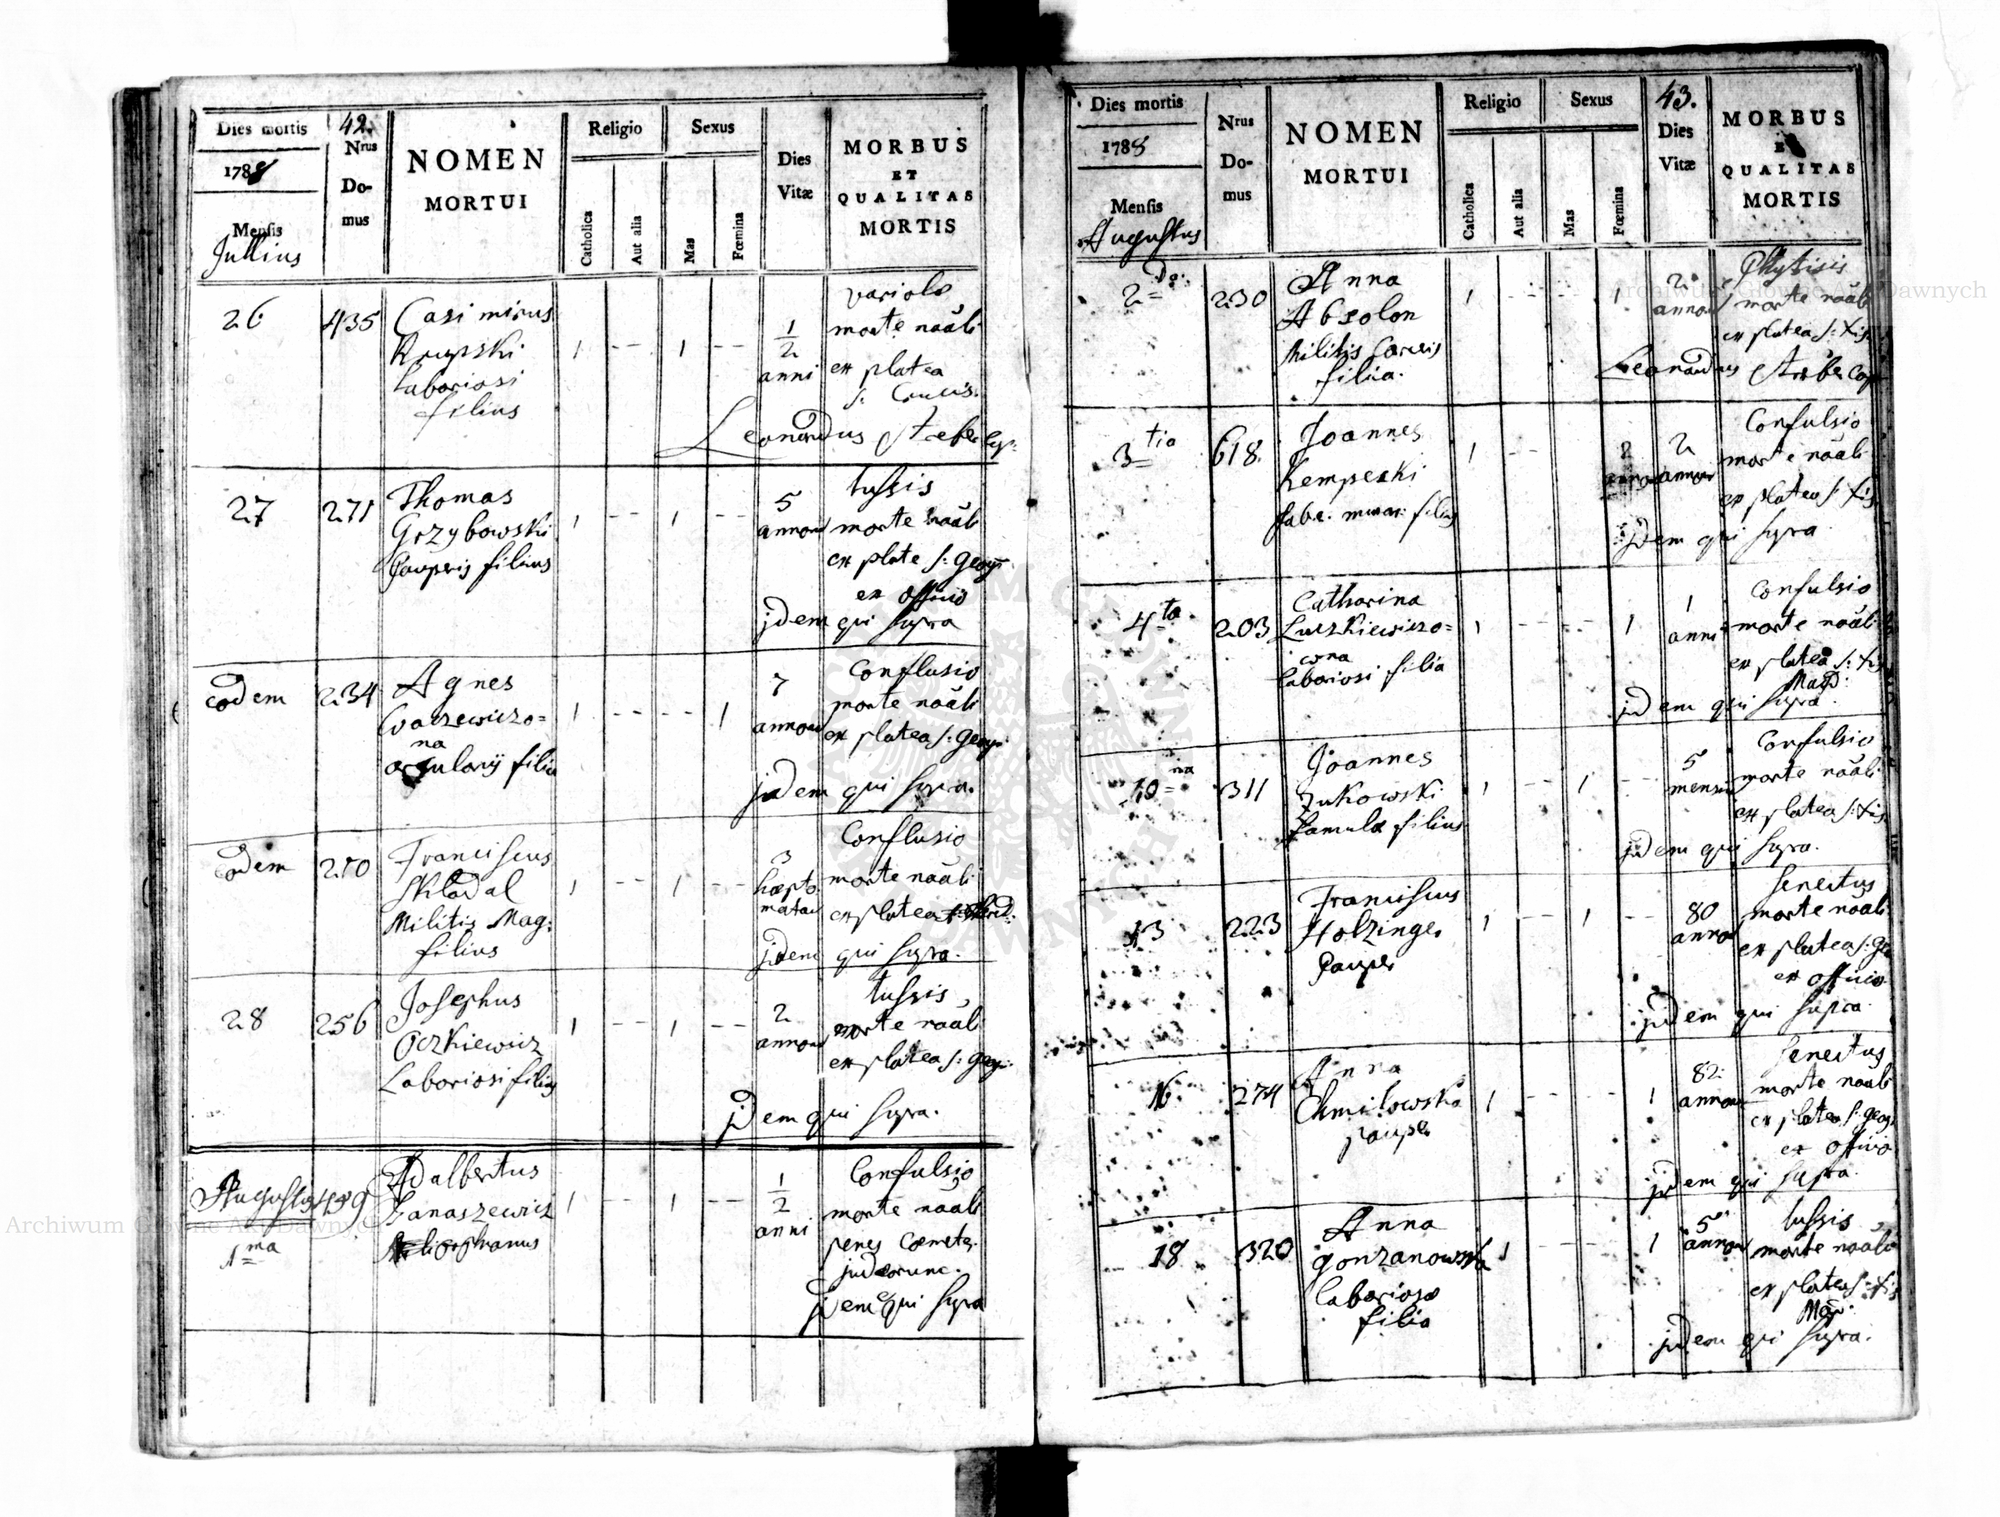 Dies mortis
1788
Mensis
Jullius
42.
Nrus
Do-
mus
NOMEN
MORTUI
Religio
Catholica
Aut alia
Sexus
Mas
Fœmina
Dies
Vitæ
MORBUS
ET
QUALITAS
MORTIS
26
435
Casimirus
Krupski
Laboriosi
filius
1
- -
1
1
2
anni
variolæ
morte nãali
ex platea
S: Crucis.
Leonardus
27
271
Thomas
Grzybowski
Pauperis filius
1
- -
1
- -
5
annor
tussis
morte nãali
ex plate S: Georgi
ex officio
jdem qui supra
eodem
234
Agnes
na
filia
1
- - - -
1
7
annor
Conflusio
morte nãali
ex platea S: Georgi
jdem qui supra.
eodem
270
Franciscus
Skladal
Militis Mag:
filius
1
- -
1
- -
3
hepto
madar
Conflusio
morte nãali
ex platea
jdem qui supra.
28
256
Josephus
Oczkiewicz
Laboriosi filius
1
- -
1
- -
2
annor
tussis,
morte nãali
ex platea S: Georgi
jdem qui supra.
Augustus
1ma
439
Adalbertus
Banaszewicz
1
- -
1
- -
1
2
anni
Confulsio
morte nãali
penes Cœmeter.
judæorum.
jdem qui supra
Dies mortis
1788
Mensis
Augustus
Nrus
Do-
mus
NOMEN
MORTUI
Religio
Catholica
Aut alia
Sexus
Mas
Fœmina
43.
Dies
Vitæ
MORBUS
QUALITAS
MORTIS
2da:
230
Anna
Absolon
Militis
filia.
1
- - - -
1
2
annor
Phtysis
morte nãali
ex platea S:
Leonardus
3tia
618.
Joannes
Kemperski
filius
1
- -
2
annor
Confulsio
morte nãali
ex platea S:
jdem qui supra
4ta
203
Catharina
Luszkiewiczo=
wna
Laboriosi filia
1
- - - -
1
1
anni
Confulsio
morte nãali
ex platea S:
Magd:
jdem qui supra.
10ma
311
Joannes
Zukowski
Famulæ filius
1
- -
1
- -
5
mensiu
Confulsio
morte nãali
ex platea S:
jdem qui supra.
13
223
Franciscus
Holzinger
Pauper
1
- -
1
- -
80
annor
senectus
morte nãali
ex platea S: Ge
ex officio
jdem qui supra
16.
274
Anna
Chmilowska
pauper
1
- - - -
1
82.
annor
senectus
morte nãali
ex platea S: Georgi
ex officio
jdem qui supra.
18
320
Anna
Gonzanowska
Laboriosæ
filia
1
- - - -
1
5
annor
tussis,
morte nãali
ex platea S:
Mar:
jdem qui supra.
Archiwum Główne Akt Dawnych
Archiwum Główne Akt Dawnych